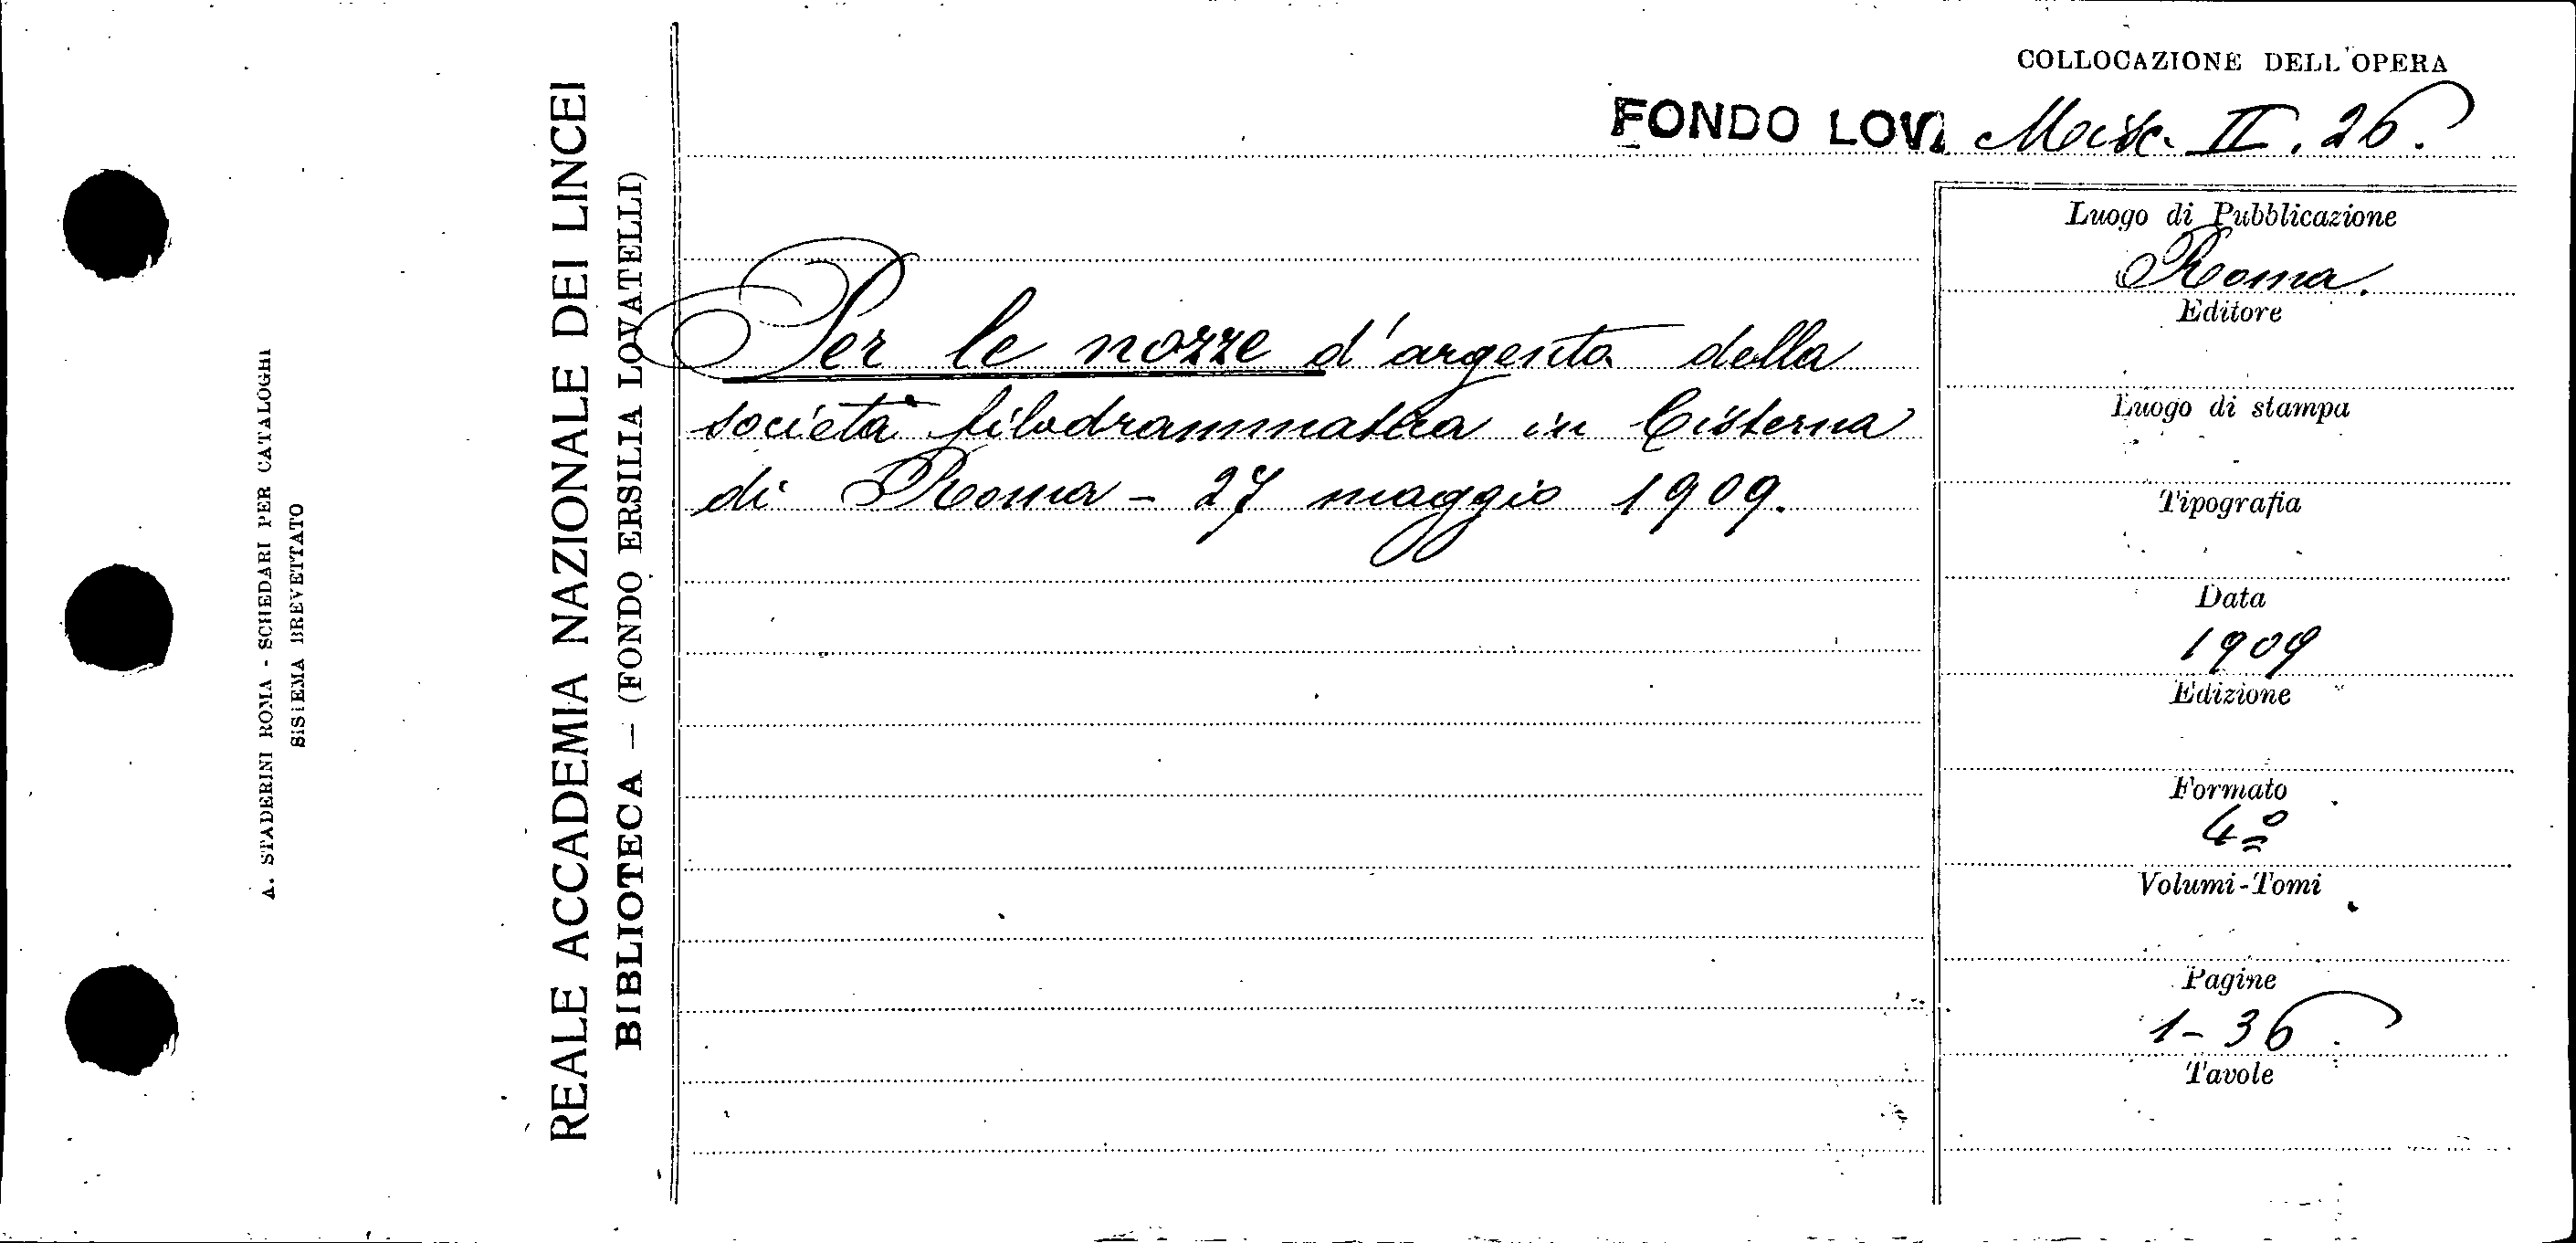 A. STADERINI ROMA - SCHEDARI PER CATALOGHI
SISTEMA BREVETTATO
REALE ACCADEMIA NAZIONALE DEI LINCEI
BIBLIOTECA — (FONDO ERSILIA LOVATELLI)
COLLOCAZIONE DELL'OPERA
FONDO LOVA Misc. II. 26.
Per le nozze d'argento della
società filodrammatica in Cisterna
di Roma - 27 maggio 1909.
Luogo di Pubblicazione
Roma.
Editore
Luogo di stampa
Tipografia
Data
1909
Edizione
Formato
4º
Volumi-Tomi
Pagine
1-36
Tavole